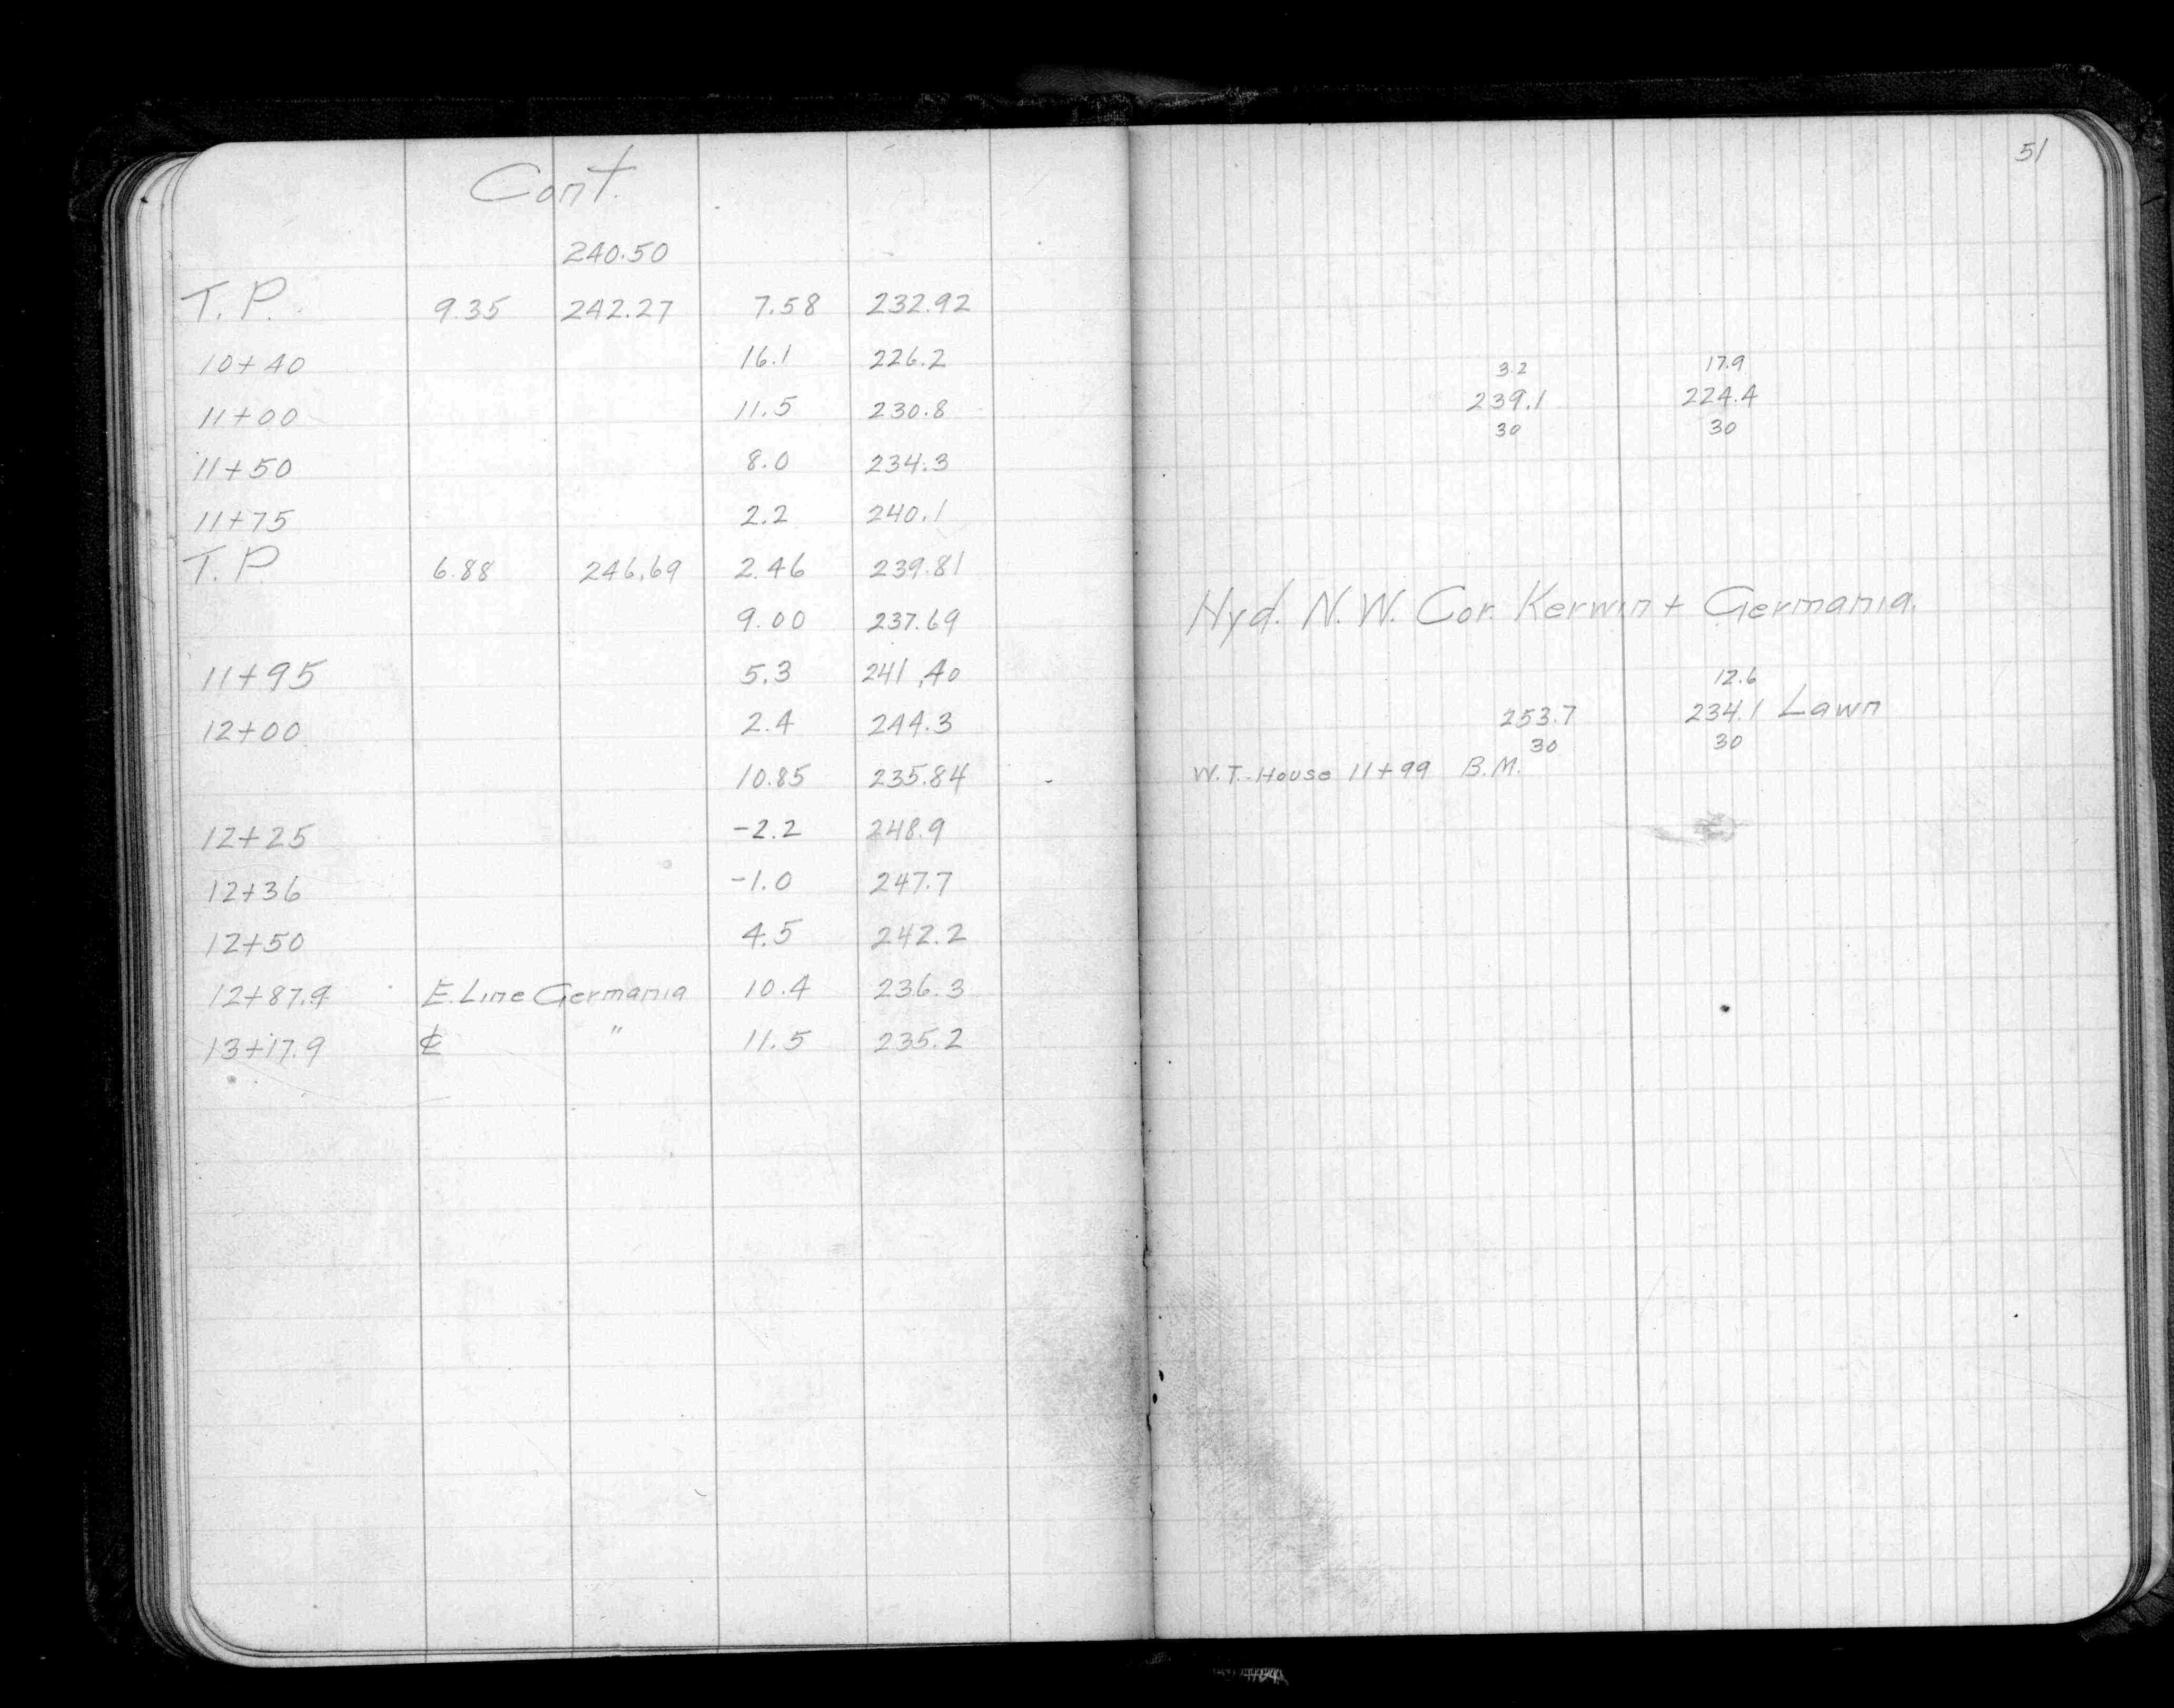 Cont.
240.50
T.P. 9.35 242.27 7.58 232.92
10+40 16.1 226.2
11+00 11.5 230.8
11+50 8.0 234.3
11+75 2.2 240.1
T.P. 6.88 246.69 2.46 239.81
9.00 237.69
11+95 5.3 241.40
12+00 2.4 244.3
10.85 235.84
12+25 -2.2 248.9
12+36 -1.0 247.7
12+50 4.5 242.2
12+87.9 E. Line Germania 10.4 236.3
13+17.9 ₵ " 11.5 235.2
51
3.2 17.9
239.1 224.4
30 30
Hyd. N.W. Cor. Kerwin + Germania.
12.6
253.7 234.1 Lawn
30 30
W.T. House 11+99 B.M.